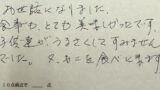 お世話になりました。
食事も、とても美味しかったです。
子供達がうるさくしてすみません
でした。 タ、カニを食べに来ます
100点満点で 点